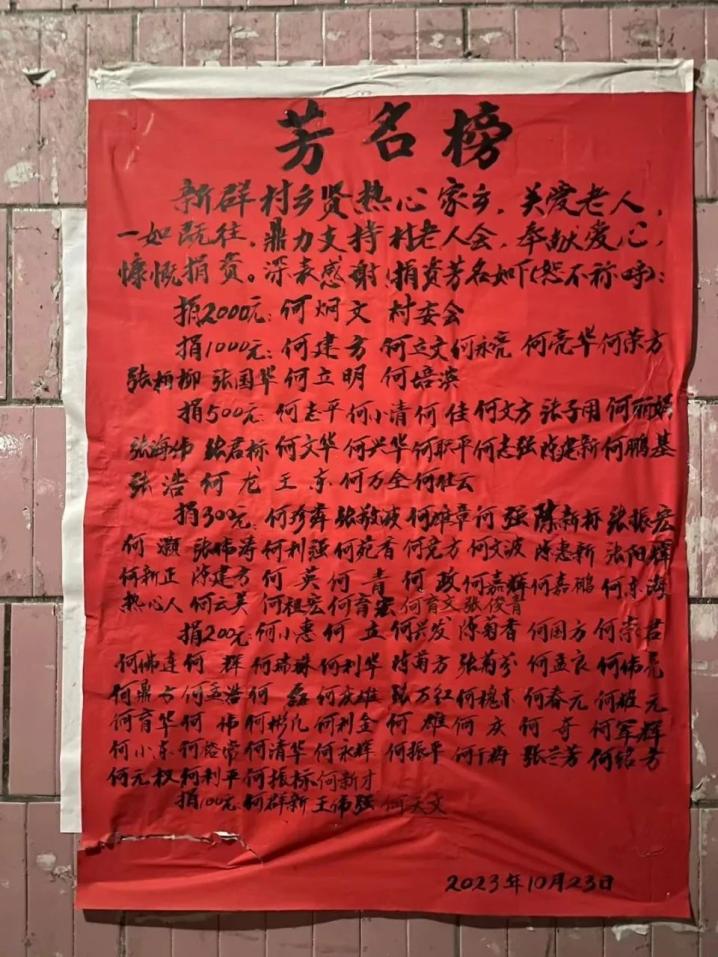 芳名榜
新群村乡贤热心家乡，关爱老人，
一如既往。鼎力支持村老人会，奉献爱心，
慷慨捐资。深表感谢！捐资芳名如下（恕不称呼）：
捐2000元：何炯文 村委会
捐1000元：何建方 何立文 何永亮 何亮华 何荣方
张柳柳 张国华 何立明 何培滨
捐500元：何志平 何小清 何佳 何文方 张子用 何丽娟
张海伟 张君标 何文华 何兴华 何职平 何志强 陈建新 何鹏基
张浩 何龙 王东 何万全 何壮云
捐300元：何珍舜 张敏波 何雄章 何强 陈新标 张振宏
何灏 张伟涛 何利强 何苑香 何竞方 何文波 陈惠新 张阳辉
何新正 陈建方 何英 何青 何政 何嘉辉 何嘉鹏 何东海
热心人 何云美 何祖宏 何育宏 何育文 张俊青
捐200元：何小惠 何立 何兴发 陈菊香 何国方 何崇君
何佛连 何群 何瑞珠 何利华 陈菊方 张菊芬 何孟良 何伟亮
何鼎方 何孟浩 何磊 何庆雄 张万红 何槐东 何春元 何雄元
何育华 何伟 何彬凡 何利金 何雄 何庆 何奇 何军辉
何小东 何裕常 何清华 何永辉 何振平 何于梅 张兰芳 何绍方
何元权 何利平 何振标 何新才
捐100元：何群新 王伟强 何天文
2023年10月23日